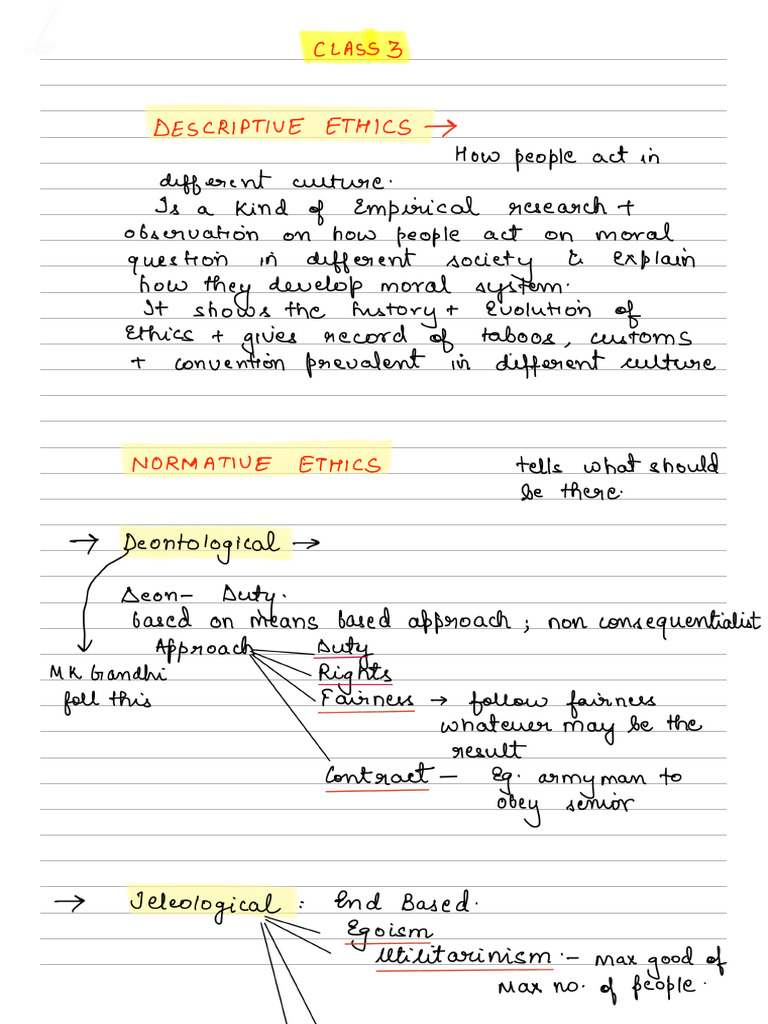 CLASS 3
DESCRIPTIVE ETHICS →
How people act in
different culture.
Is a kind of Empirical research +
observation on how people act on moral
question in different society & explain
how they develop moral system.
It shows the history + Evolution of
Ethics + gives record of taboos, customs
+ convention prevalent in different culture
NORMATIVE ETHICS tells what should
be there.
→ Deontological →
Deon- Duty.
based on means based approach ; non consequentialist
Approach Duty
MK Gandhi Rights
foll this Fairness → follow fairness
whatever may be the
result
Contract - Eg. armyman to
obey senior
→ Teleological : End Based.
Egoism
Utilitarinism :- Max good of
Max no. of people.